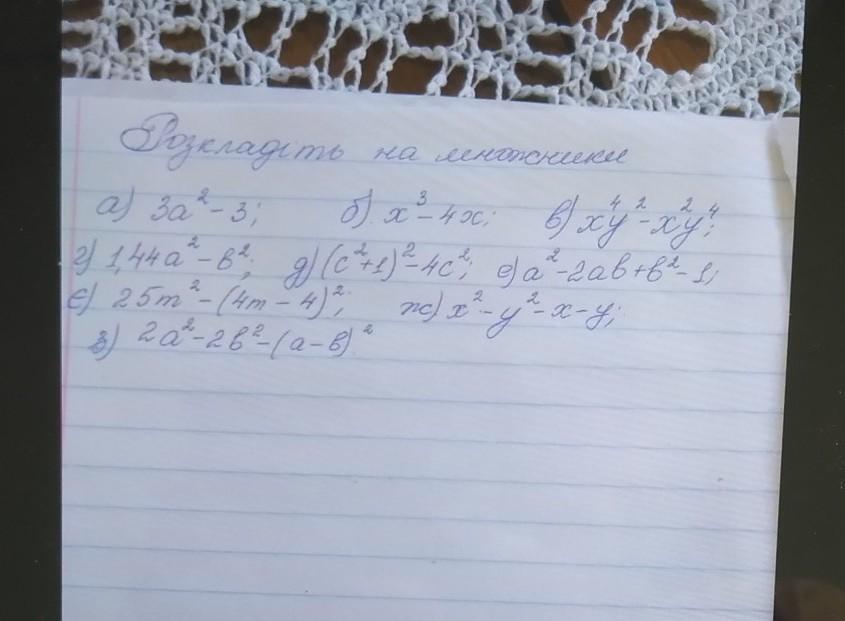 Розкладіть на множники
а) 3a² - 3; б) x³ - 4x; в) x⁴y² - x²y⁴;
г) 1,44a² - b²; д) (c²+1)² - 4c²; е) a² - 2ab + b² - 1;
є) 25m² - (4m - 4)²; ж) x² - y² - x - y;
з) 2a² - 2b² - (a - b)²